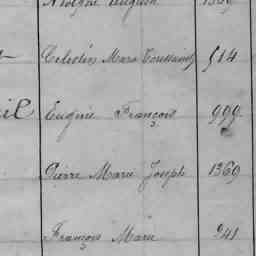 Celestin Marie Toussaint 514
Eugène François 999
Pierre Marie Joseph 1369
François Marie 941